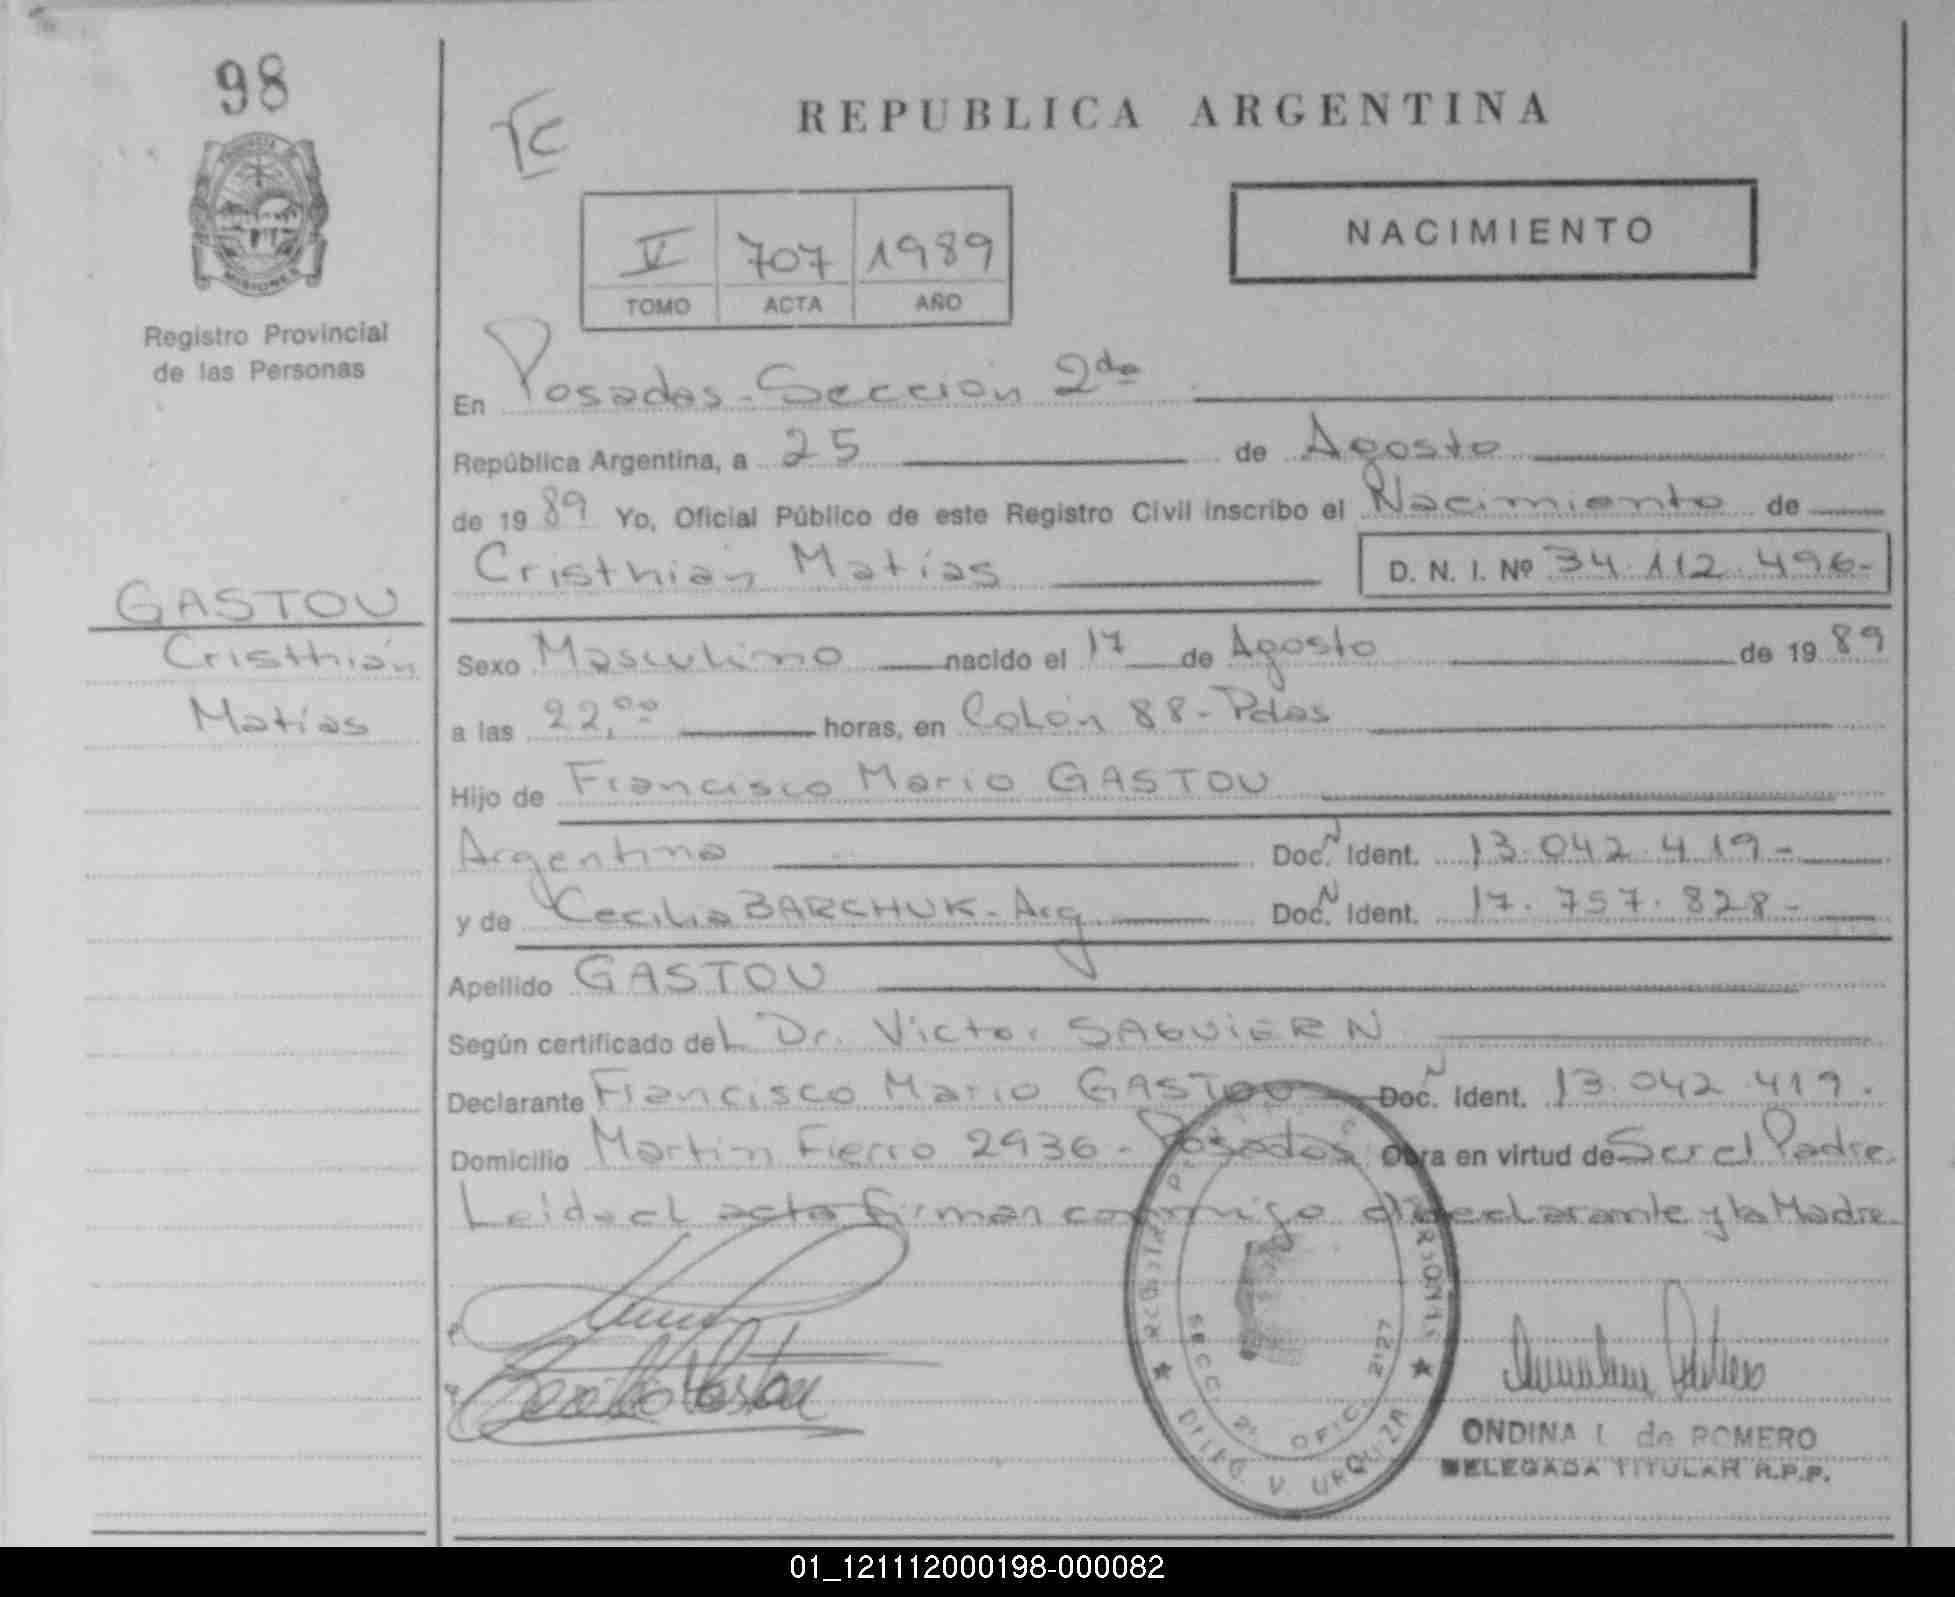 98
Registro Provincial
de las Personas
GASTOU
Cristhián
Matías
REPUBLICA ARGENTINA
NACIMIENTO
V 707 1989
TOMO ACTA AÑO
En Posadas - Sección 2da
República Argentina, a 25 de Agosto
de 19 89 Yo, Oficial Público de este Registro Civil inscribo el Nacimiento de
Cristhián Matías D. N. I. Nº 34.112.496-
Sexo Masculino nacido el 17 de Agosto de 19 89
a las 22,00 horas, en Colón 88 - Pdas
Hijo de Francisco Mario GASTOU
Argentino Doc. N Ident. 13.042.419-
y de Cecilia BARCHUK - Arg Doc. N Ident. 17.757.828-
Apellido GASTOU
Según certificado del Dr. Victor SAGUIER N
Declarante Francisco Mario GASTOU Doc. N Ident. 13.042.419.
Domicilio Martín Fierro 2936 - Posadas Obra en virtud de Ser el Padre
Leída el acta firman conmigo el declarante y la Madre
SECC. 2ª OFIC. 2127
DELEG. V. URQUIZA
ONDINA I. de ROMERO
DELEGADA TITULAR R.P.P.
01_121112000198-000082